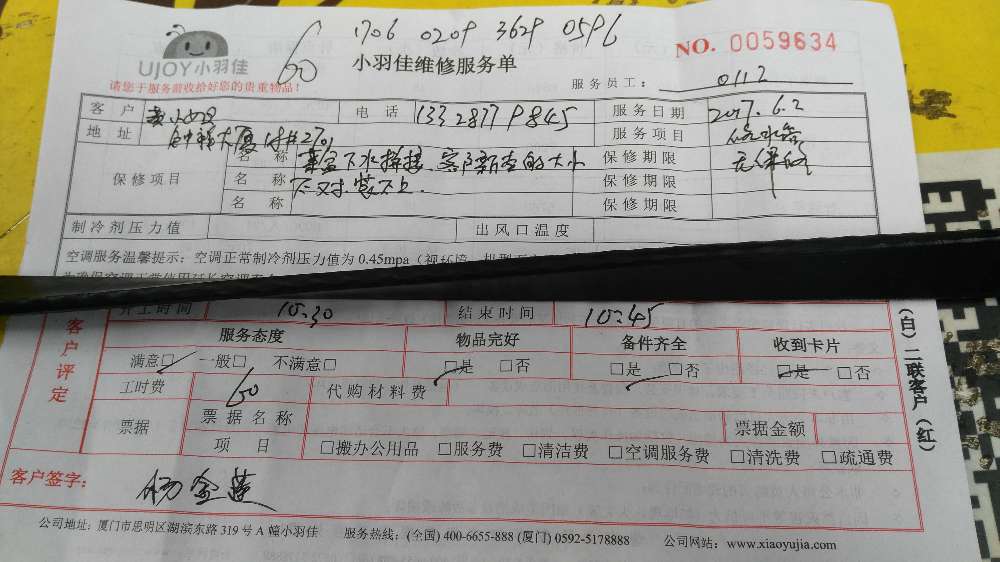 1706 0209 3629 0596
UJOY小羽佳
60
小羽佳维修服务单
NO. 0059634
请您于服务前收拾好您的贵重物品!
服务员工: 0112
客户 黄小姐 电话 13328779845 服务日期 2017.6.2
地址 2701 服务项目 修水
名称 菜盆下水 客户新查的大小 保修期限 无保修
保修项目 名称 不对.装不上. 保修期限
名称 保修期限
制冷剂压力值 出风口温度
空调服务温馨提示: 空调正常制冷剂压力值为 0.45mpa
开工时间 10:30 结束时间 10:45
客户评定
服务态度 物品完好 备件齐全 收到卡片
满意□ 一般□ 不满意□ □是 □否 □是 □否 □是 □否
工时费 60 代购材料费
票据 票据名称 票据金额
项目 □搬办公用品 □服务费 □清洁费 □空调服务费 □清洗费 □疏通费
(白)二联客户(红)
客户签字: 杨金莲
公司地址: 厦门市思明区湖滨东路 319 号 A 幢小羽佳 服务热线: (全国) 400-6655-888 (厦门) 0592-5178888 公司网站: www.xiaoyujia.com